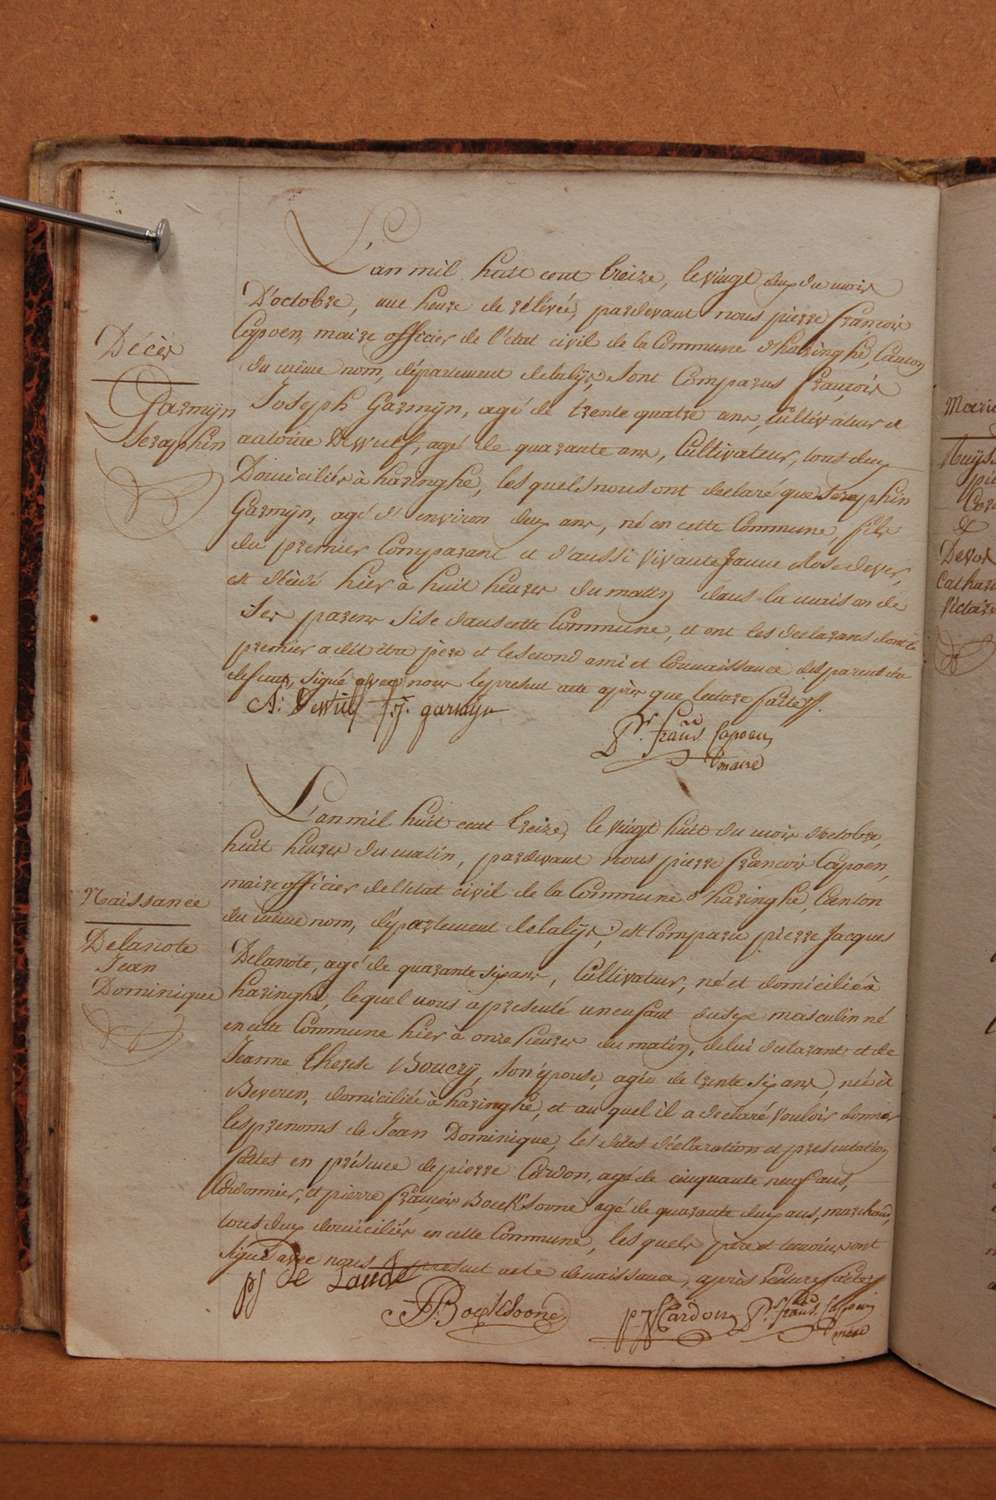 Décès
Garmÿn
Seraphin
L'an mil huit cent treize, le vingt deux du mois
D'octobre, une heure de rélévée, pardevant nous pierre françois
Capoen, maire officier de l'état civil de la Commune d'haringhe, Canton
du même nom, département delalÿs, sont Comparus françois
Joseph Garmÿn, agé de trente quatre ans, Cultivateur et
antoine Dewulf, agé de quarante ans, Cultivateur, tous deux
Domiciliés à haringhe, les quels nous ont declaré que Séraphin
Garmÿn, agé d'environ deux ans, né en cette Commune, fils
du premier Comparant et d'aussi vivante Jeanne
est décédé hier à huit heures du matin dans la maison de
ses parens sise dans cette Commune, et ont les declarans dont le
premier a dit être père et le second ami et Connaissance des parens du
defunt, signé avec nous le present acte après que lecture faite.
f: j: garmijn
Pr. françs Capoen
maire
Naissance
Delanote
Jean
Dominique
L'an mil huit cent treize, le vingt huit du mois d'octobre,
huit heures du matin, pardevant nous pierre françois Capoen,
maire officier de l'état civil de la Commune d'haringhe, Canton
du même nom, département delalÿs, est Comparu pierre Jacques
Delanote, agé de quarante six ans, Cultivateur, né et domicilié à
haringhe, lequel nous a presenté un enfant du sexe masculin né
en cette Commune hier à onze heures du matin, de lui declarant et de
Jeanne therese Boucrÿ, son épouse, agée de trente six ans, née à
Beveren, domiciliée à haringhe, et au quel il a declaré vouloir donner
les prenoms de Jean Dominique, les dites déclaration et presentation
faites en présence de pierre Cardon, agé de cinquante neuf ans,
Cordonnier, et pierre françois Boucksoone agé de quarante deux ans, marchand,
tous deux domiciliés en cette Commune, les quels père et temoins ont
signé avec nous le present acte de naissance, après lecture faite
pj De Lanote
Boucksoone
p j Cardon
Pr. françs Capoen
maire
Marie
Devos
Catharine
Victoire